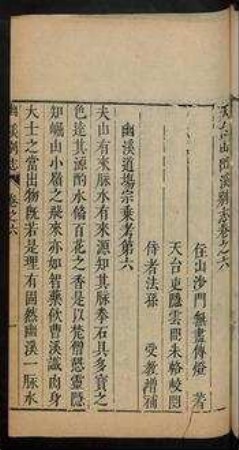 天台山幽溪別志卷之六
住山沙門無盡傳燈 著
天台東隱雲間朱輅較閱
侍者法孫 受教增補
幽溪道場宗乘考第六
夫山有來脉水有來源知其脉拳石具多寶之
色達其源酌水備百花之香是以梵僧恐靈隱
知嵋山小嶺之飛來亦如智藥飲曹溪識肉身
大士之當出物既若是理有固然幽溪一脉水
幽溪別志 卷之六 一